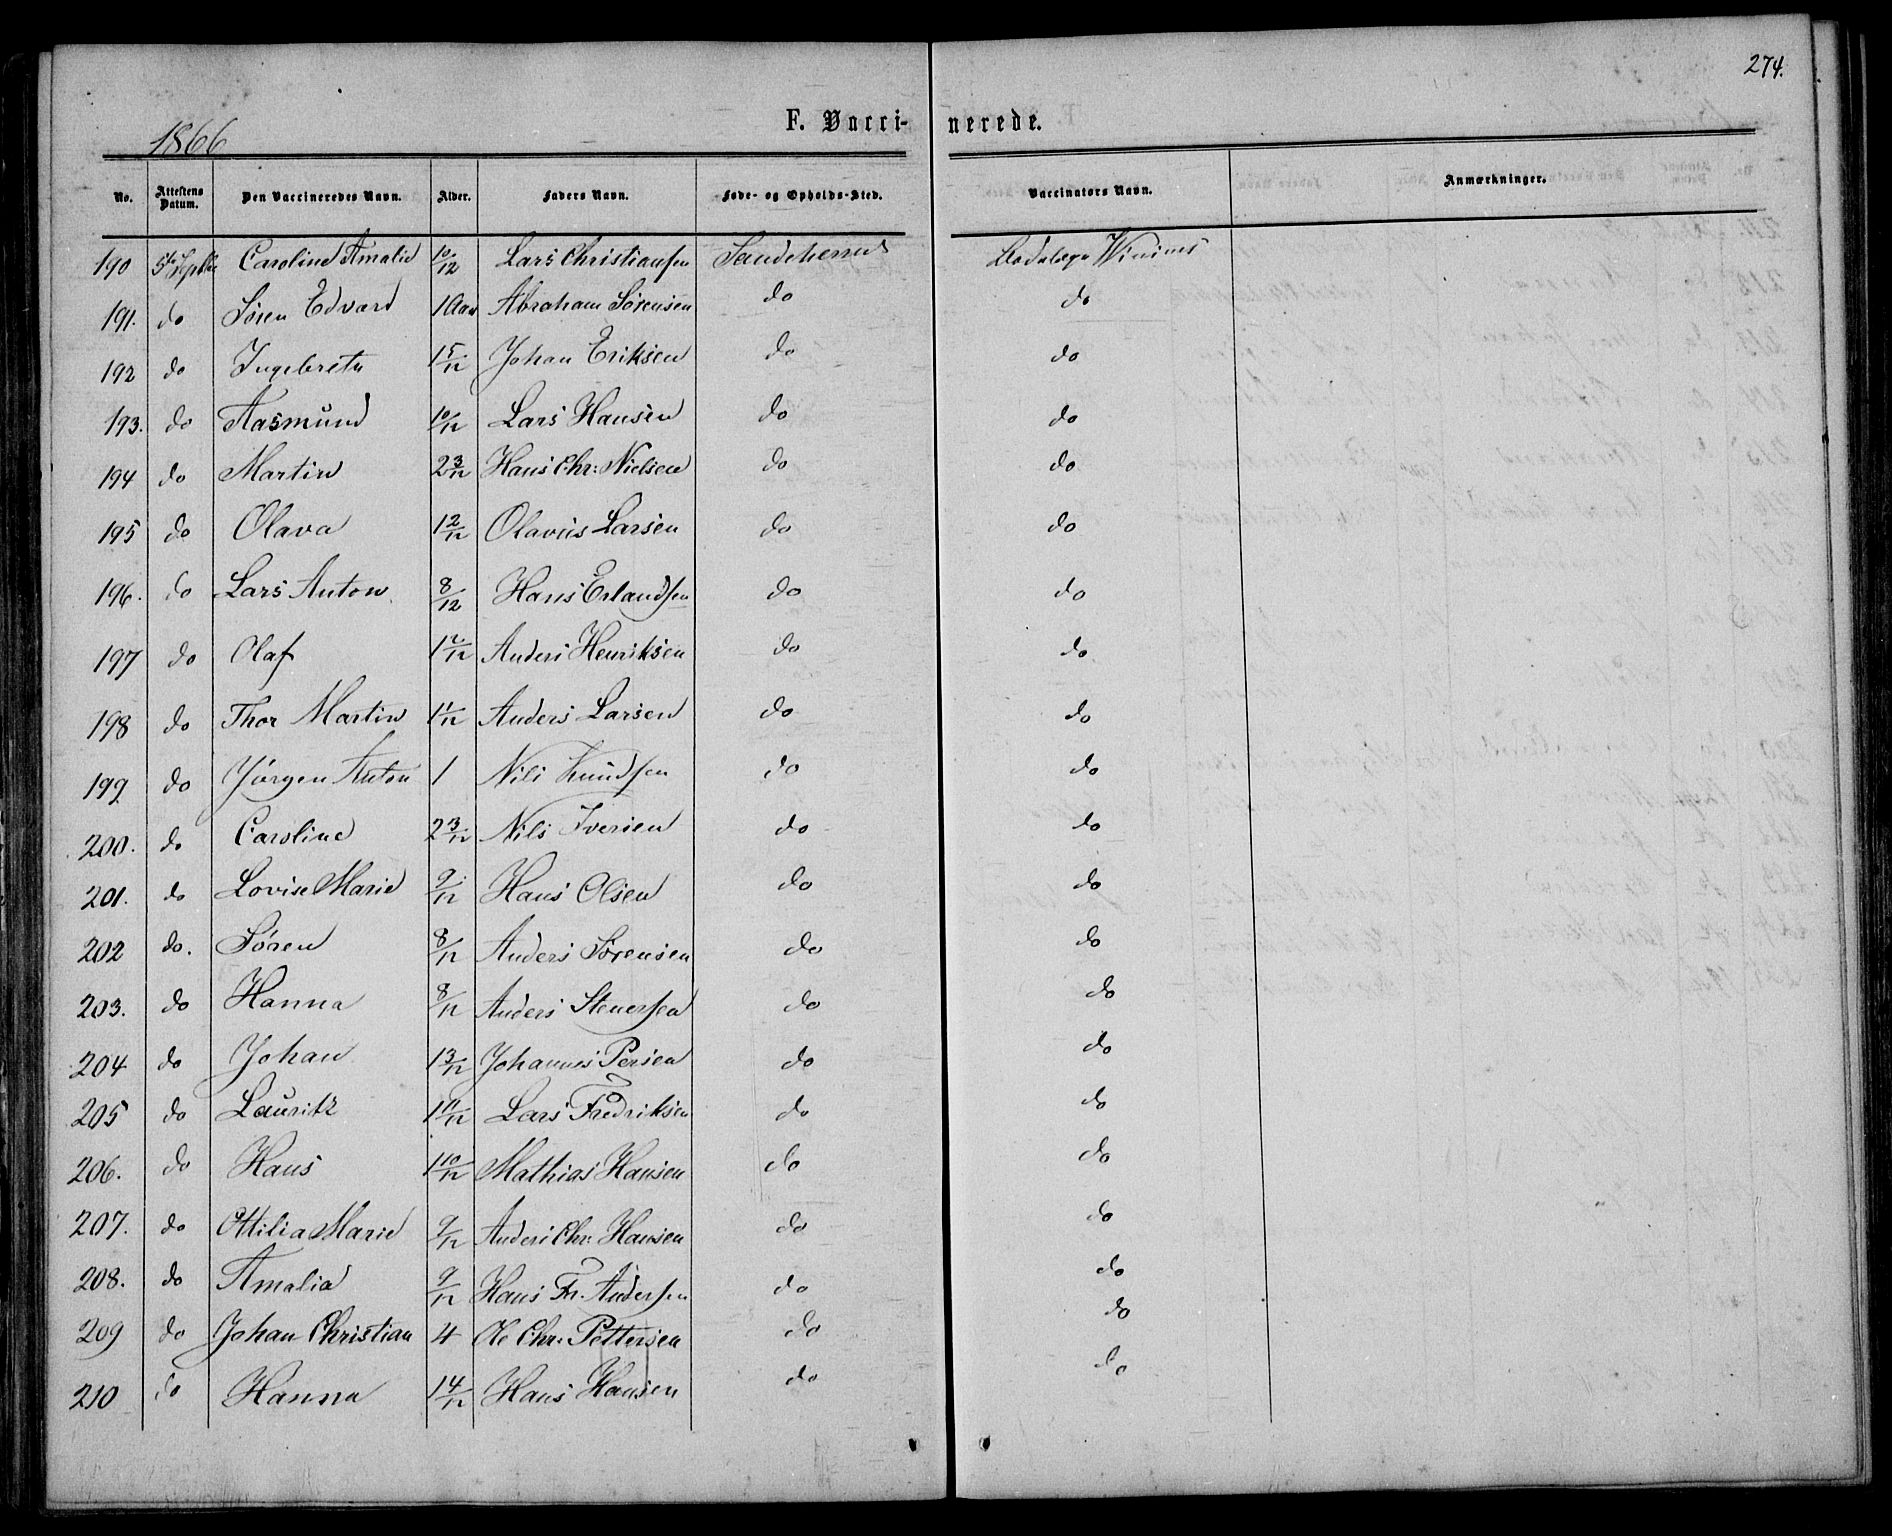 274.
1866
F. Vacci- nerede.
No. Attestens Datum. Den Vaccineredes Navn. Alder. Faders Navn. Føde- og Opholds-Sted. Vaccinators Navn. Anmærkninger.
190 5te Septbr Caroline Amalie 10/12 Lars Christiansen Sandeherred Wiriims
191. do Søren Edvard 1 Aar Abraham Sørensen do do
192 do Ingebreta 1 5/12 Johan Eriksen do do
193. do Aasmund 10/12 Lars Hansen do do
194 do Martin 2 3/12 Hans Chr: Nielsen do do
195 do Olava 1 2/12 Olavus Larsen do do
196. do Lars Anton 8/12 Hans Erlandsen do do
197 do Olaf 1 2/12 Anders Henriksen do do
198 do Thor Martin 1 1/12 Anders Larsen do do
199 do Jörgen Anton 1 Nils Knudsen do do
200. do Caroline 2 3/12 Nils Iversen do do
201. do Lovise Marie 9/12 Hans Olsen do do
202 do. Søren 8/12 Anders Sørensen do do
203. do Hanna 8/12 Anders Stenersen do do
204 do Johan 1 3/12 Johannes Persen do do
205 do Lauritz 1 11/12 Lars Fredriksen do do
206. do Hans 1 10/12 Mathias Hansen do do
207. do Ottilia Marie 9/12 Anders Chr: Hansen do do
208. do Amalia 9/12 Hans Fr. Andersen do do
209 do Johan Christian 4 Ole Chr: Pettersen do do
210 do Hanna 1 4/12 Hans Hansen do do